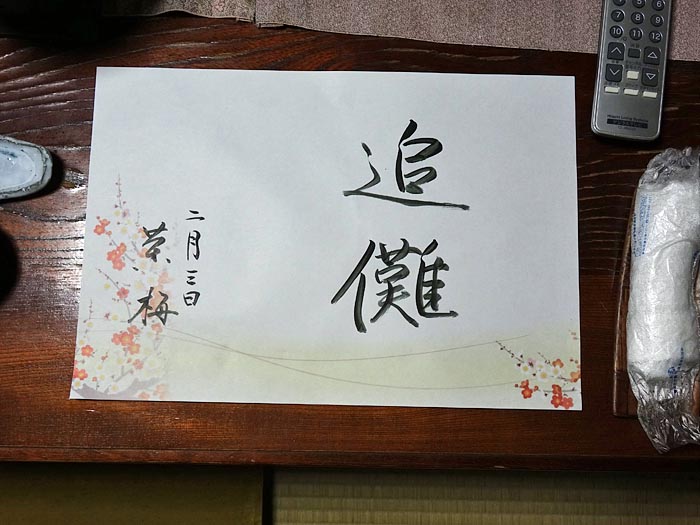 追儺
二月三日
茶梅